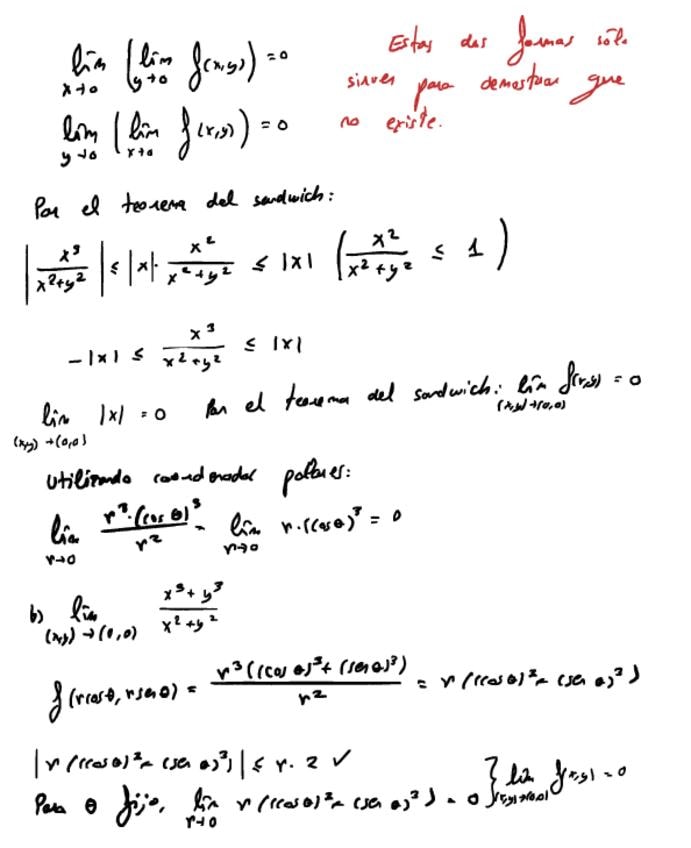 lim_{x→0} (lim_{y→0} f(x,y)) = 0
Estas dos formas sólo
sirven para demostrar que
no existe.
lim_{y→0} (lim_{x→0} f(x,y)) = 0
Por el teorema del sandwich:
|x³/(x²+y²)| ≤ |x|· x²/(x²+y²) ≤ |x| (x²/(x²+y²) ≤ 1)
-|x| ≤ x³/(x²+y²) ≤ |x|
lim_{(x,y)→(0,0)} |x| = 0 Por el teorema del sandwich: lim_{(x,y)→(0,0)} f(x,y) = 0
Utilizando coordenadas polares:
lim_{r→0} r³·(cos θ)³/r² = lim_{r→0} r·(cos θ)³ = 0
b) lim_{(x,y)→(0,0)} (x³+y³)/(x²+y²)
f(r cos θ, r sen θ) = r³((cos θ)³+(sen θ)³)/r² = r((cos θ)³+(sen θ)³)
|r((cos θ)³+(sen θ)³)| ≤ r·2 ✓
Para θ fijo, lim_{r→0} r((cos θ)³+(sen θ)³) = 0 } lim_{(x,y)→(0,0)} f(x,y) = 0